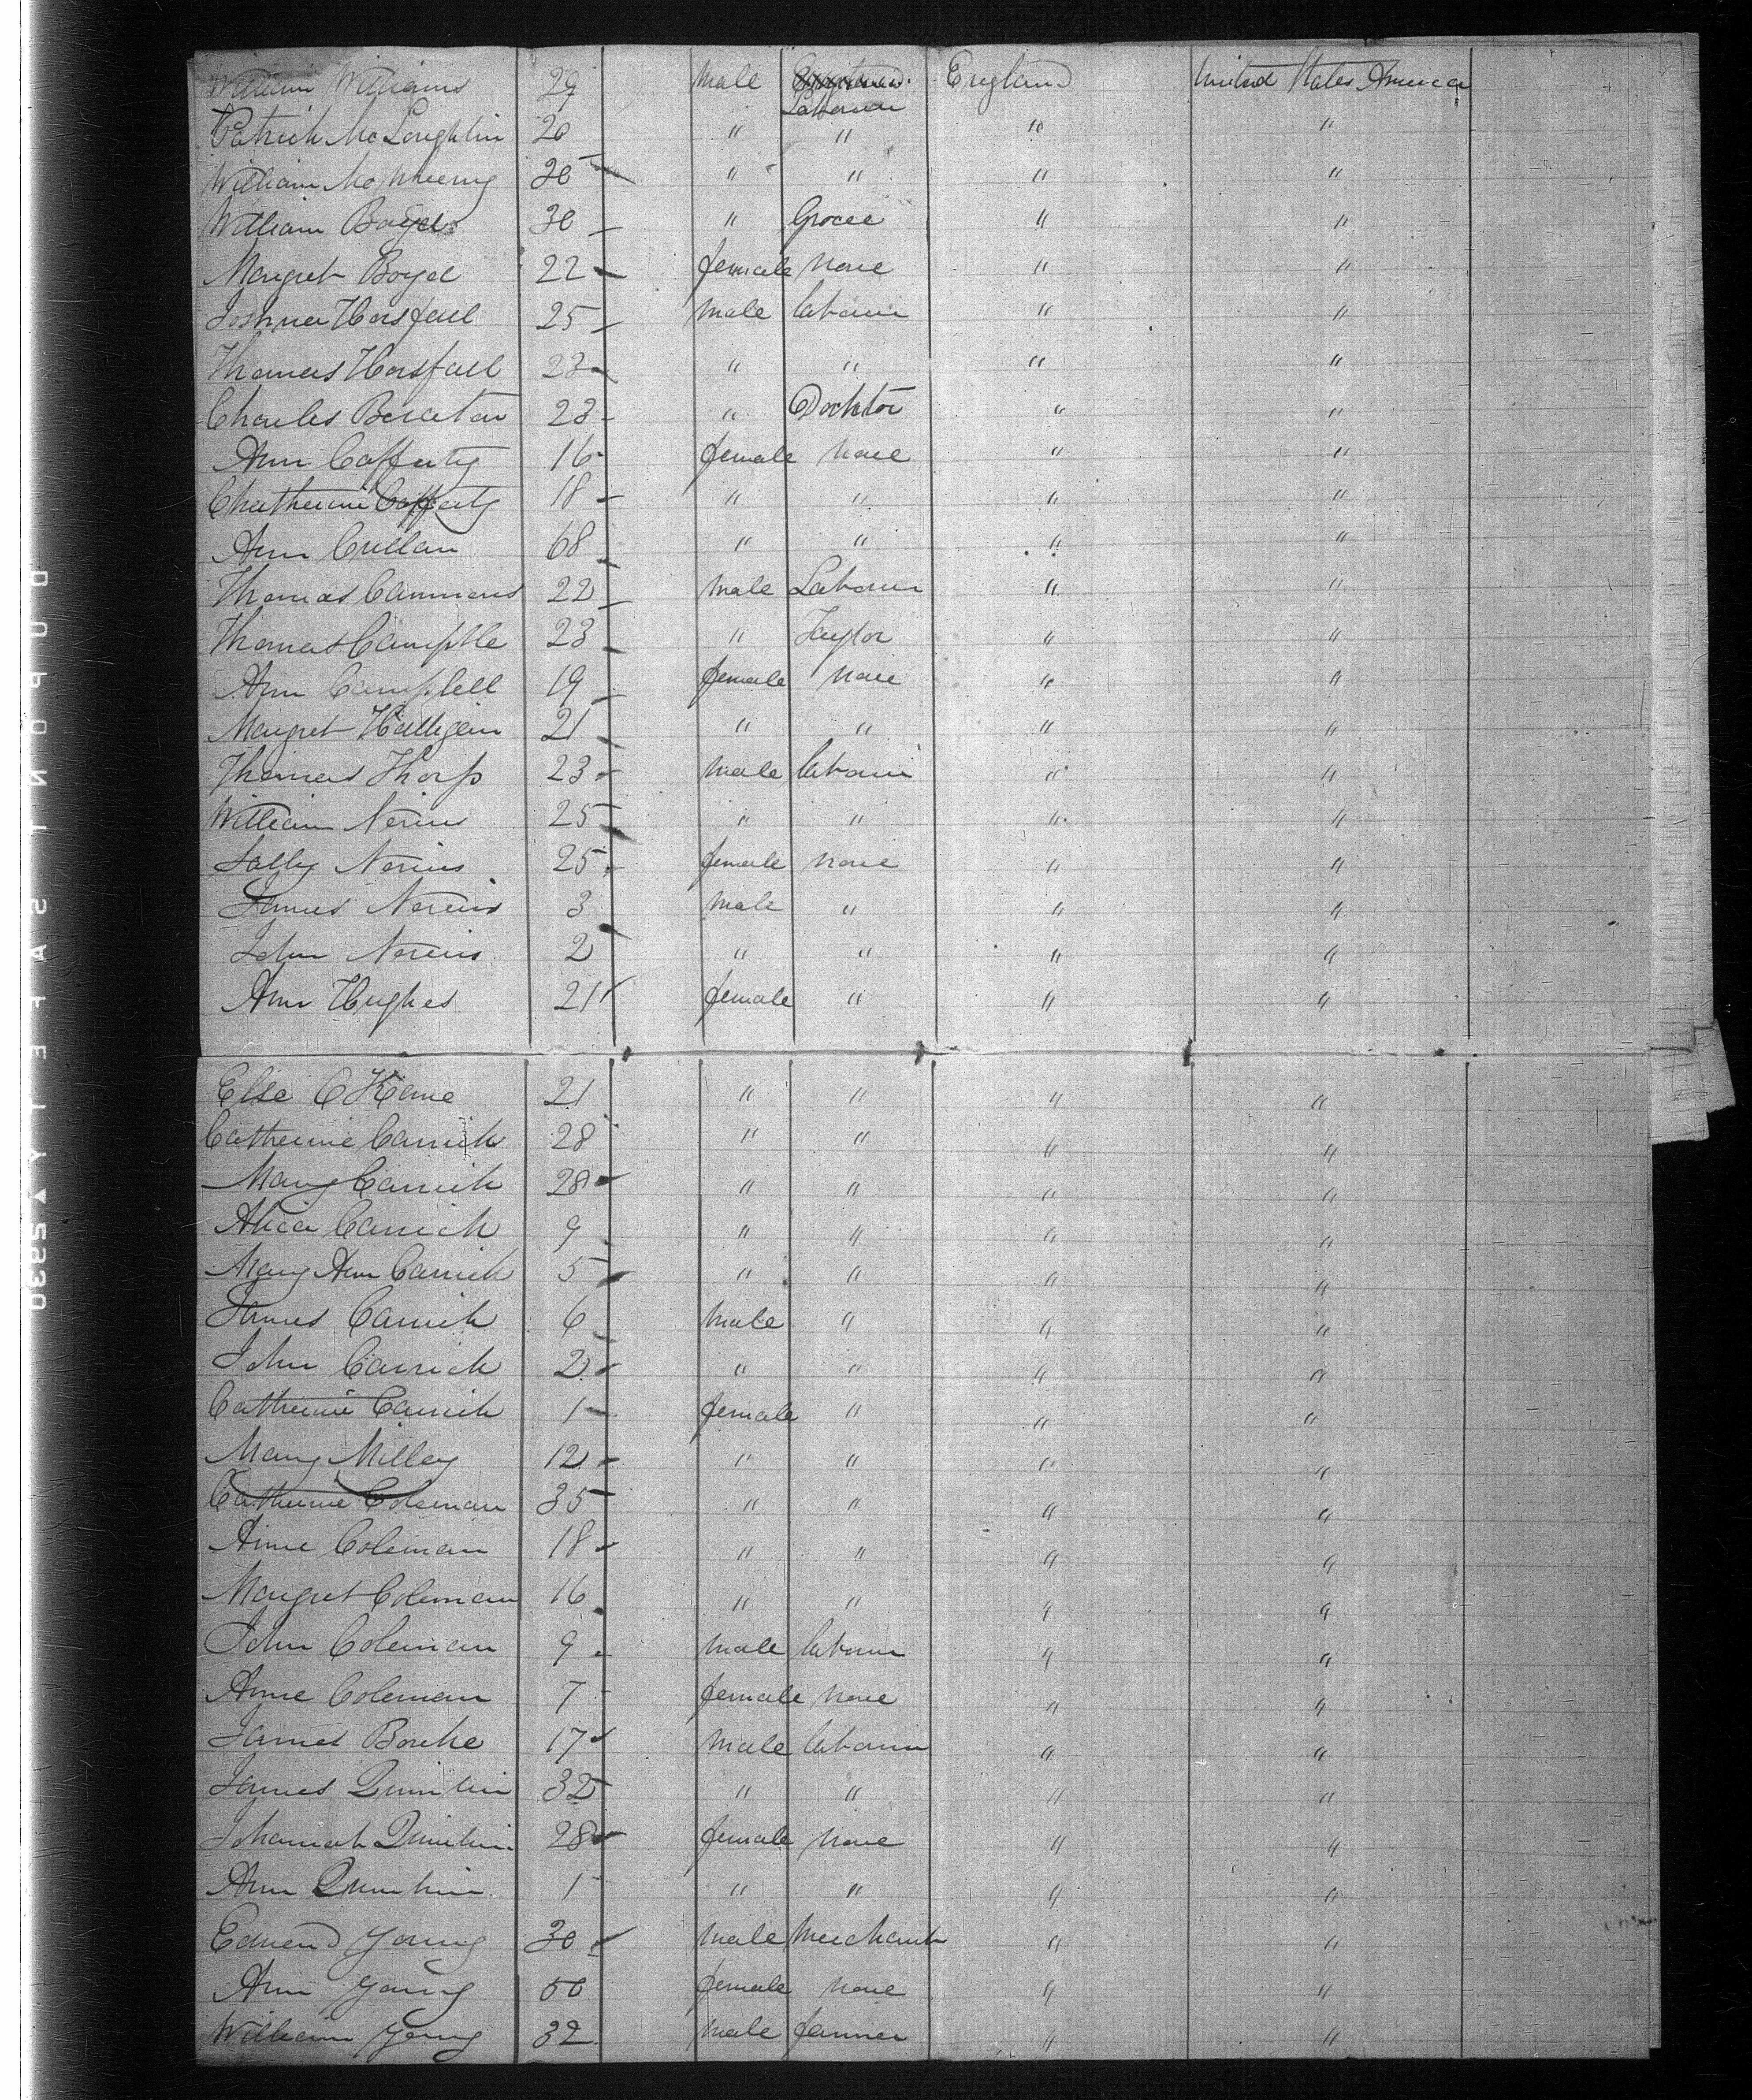 William Williams 29 male Labourer England United States America
Patrick McLoughlin 20 " " " "
William McWheeny 28 " " " "
William Boyd 30 " Grocer " "
Margret Boyd 22 female none " "
Joshua Horsfall 25 male labourer " "
Thomas Horsfall 23 " " " "
Charles 23 " Docktor " "
Ann Cafferty 16 female none " "
Chatherine Cafferty 18 " " " "
Ann Cullan 68 " " " "
Thomas Cammons 22 male Labourer " "
Thomas Camplle 23 " Taylor " "
Ann Campbell 19 female none " "
Margret Halligan 21 " " " "
Thomas Thorp 23 male labourer " "
William Nerius 25 " " " "
Sally Nerius 25 female none " "
James Nerius 3 male " " "
John Nerius 2 " " " "
Ann Hughes 21 female " " "
Else O Kane 21 " " " "
Catherine Carrick 28 " " " "
Mary Carrick 28 " " " "
Alica Carrick 9 " " " "
Mary Ann Carrick 5 " " " "
James Carrick 6 male " " "
John Carrick 2 " " " "
Catherine Carrick 1 female " " "
Mary Milley 12 " " " "
Catherine Coleman 35 " " " "
Anne Coleman 18 " " " "
Margret Coleman 16 " " " "
John Coleman 9 male labourer " "
Anne Coleman 7 female none " "
James Bourke 17 male labourer " "
James Quinlin 32 " " " "
Johannah Quinlin 28 female none " "
Ann Quinlin 1 " " " "
Edmend Young 30 male Merchant " "
Ann Young 50 female none " "
William Young 32 male farmer " "